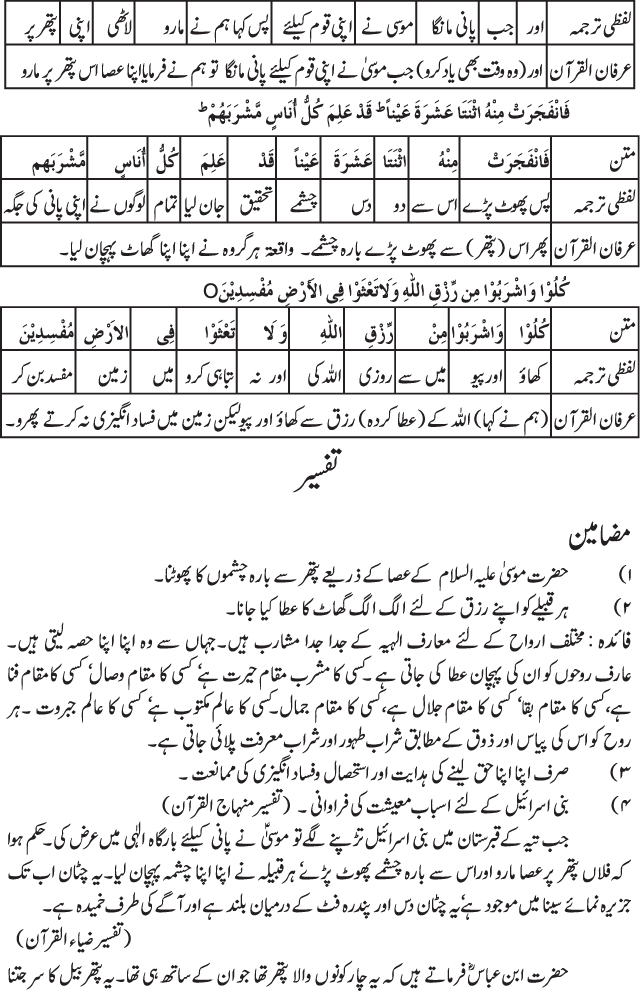 لفظی ترجمہ اور جب پانی مانگا موسیٰ نے اپنی قوم کیلئے پس کہا ہم نے مارو لاٹھی اپنی پتھر پر
عرفان القرآن اور (وہ وقت بھی یاد کرو) جب موسیٰ نے اپنی قوم کیلئے پانی مانگا تو ہم نے فرمایا اپنا عصا اس پتھر پر مارو
فَانْفَجَرَتْ مِنْهُ اثْنَتَا عَشَرَةَ عَيْناً ؕ قَدْ عَلِمَ كُلُّ اُنَاسٍ مَّشْرَبَهُمْ ؕ
متن فَانْفَجَرَتْ مِنْهُ اثْنَتَا عَشَرَةَ عَيْناً قَدْ عَلِمَ كُلُّ اُنَاسٍ مَّشْرَبَهم
لفظی ترجمہ پس پھوٹ پڑے اس سے دو دس چشمے تحقیق جان لیا تمام لوگوں نے اپنی پانی کی جگہ
عرفان القرآن پھر اس (پتھر) سے پھوٹ پڑے بارہ چشمے۔ واقعۃ ہر گروہ نے اپنا اپنا گھاٹ پہچان لیا۔
كُلُوْا وَاشْرَبُوْا مِن رِّزْقِ اللهِ وَلَا تَعْثَوْا فِى الْاَرْضِ مُفْسِدِيْنَO
متن كُلُوْا وَاشْرَبُوْا مِنْ رِّزْقِ اللهِ وَ لَا تَعْثَوْا فِى الْاَرْضِ مُفْسِدِيْنَ
لفظی ترجمہ کھاؤ اور پیو میں سے روزی اللہ کی اور نہ تباہی کرو میں زمین مفسد بن کر
عرفان القرآن (ہم نے کہا) اللہ کے (عطا کردہ) رزق سے کھاؤ اور پیو لیکن زمین میں فساد انگیزی نہ کرتے پھرو۔
تفسیر
مضامین
۱) حضرت موسیٰ علیہ السلام کے عصا کے ذریعے پتھر سے بارہ چشموں کا پھوٹنا۔
۲) ہر قبیلے کو اپنے رزق کے لئے الگ الگ گھاٹ کا عطا کیا جانا۔
فائدہ : مختلف ارواح کے لئے معارف الٰہیہ کے جدا جدا مشارب ہیں۔ جہاں سے وہ اپنا اپنا حصہ لیتی ہیں۔
عارف روحوں کو ان کی پہچان عطا کی جاتی ہے۔ کسی کا مشرب مقام حیرت ہے، کسی کا مقام وصال، کسی کا مقام فنا
ہے، کسی کا مقام بقا، کسی کا مقام جلال ہے، کسی کا مقام جمال۔ کسی کا عالم مکتوب ہے، کسی کا عالم جبروت۔ ہر
روح کو اس کی پیاس اور ذوق کے مطابق شراب طہور اور شراب معرفت پلائی جاتی ہے۔
۳) صرف اپنا اپنا حق لینے کی ہدایت اور استحصال و فساد انگیزی کی ممانعت ۔
۴) بنی اسرائیل کے لئے اسباب معیشت کی فراوانی ۔ (تفسیر منہاج القرآن)
جب تیہ کے قبرستان میں بنی اسرائیل تڑپنے لگے تو موسیٰؑ نے پانی کیلئے بارگاہ الٰہی میں عرض کی۔ حکم ہوا
کہ فلاں پتھر پر عصا مارو اور اس سے بارہ چشمے پھوٹ پڑے، ہر قبیلہ نے اپنا اپنا چشمہ پہچان لیا۔ یہ چٹان اب تک
جزیرہ نمائے سینا میں موجود ہے، یہ چٹان دس اور پندرہ فٹ کے درمیان بلند ہے اور آگے کی طرف خمیدہ ہے۔
(تفسیر ضیاء القرآن)
حضرت ابن عباسؓ فرماتے ہیں کہ یہ چار کونوں والا پتھر تھا جو ان کے ساتھ ہی تھا۔ یہ پتھر بیل کا سر جتنا